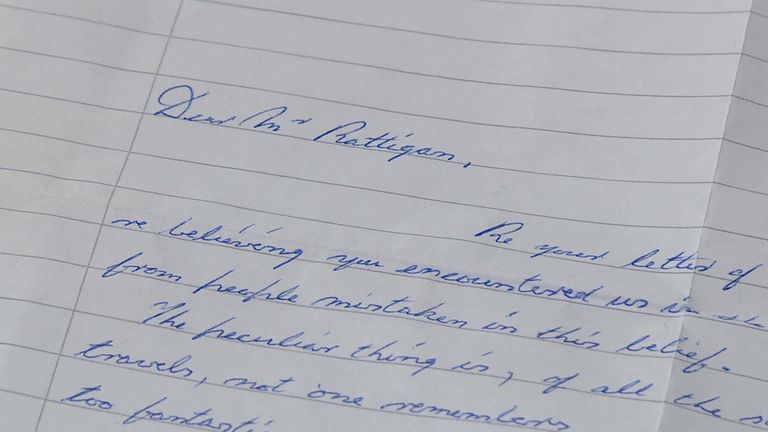 Dear Mr Rattigan,
Re your letter of
re believing you encountered us in
from people mistaken in this belief.
The peculiar thing is, of all the
travels, not one remembers
too fantasti